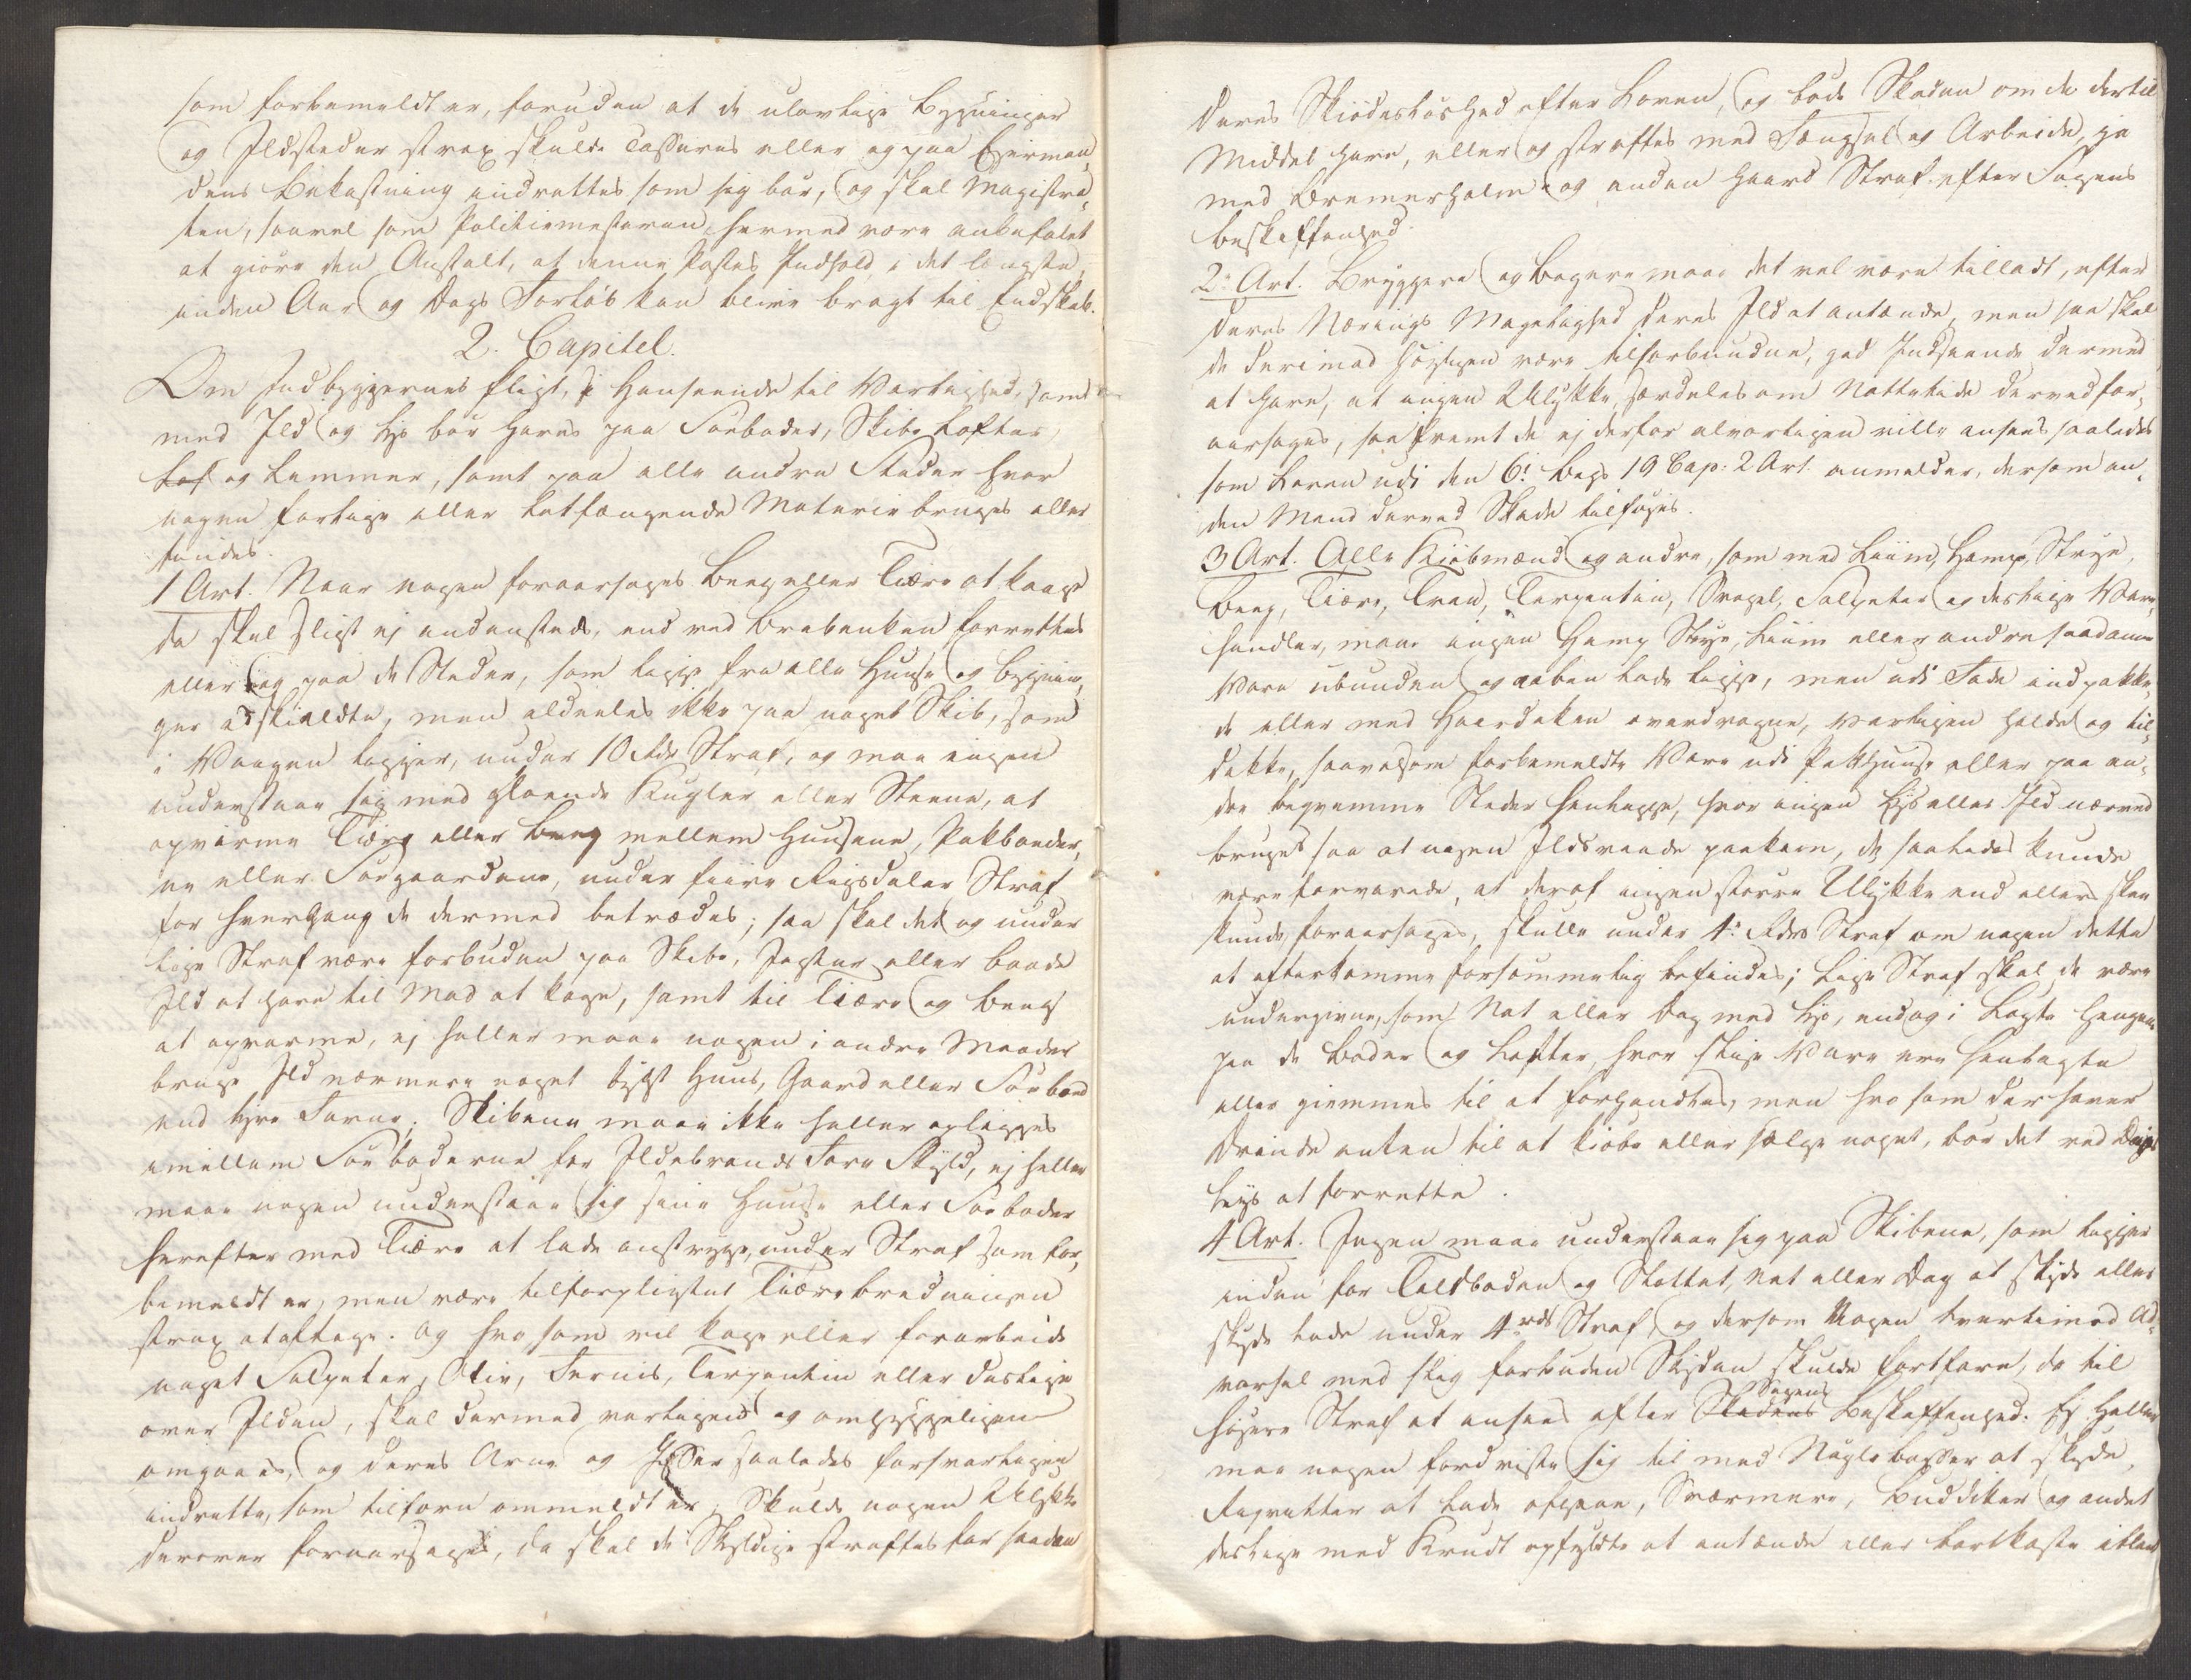 som forbemeldt er, foruden at de ulovlige Bygninger
og Ildsteder strax skulde Casseres eller og paa Eiermæn¸
dens Bekostning indrettes som sig bør, og skal Magistra¸
ten, saavel som Politiemesteren hermed være anbefalet
at giøre den Anstalt, at denne Postes Indhold i det længste
inden Aar og Dags Forløb kan blive bragt til Endskab.
2. Capitel.
Om Indbyggernes Pligt, i Henseende til Varlighed, som
med Ild og Lys bør haves paa Søeboder, Skibe Lofter
Lof og Lemmer, samt paa alle andre Steder hvor
nogen farlige eller letfængende Materie bruges eller
findes.
1 Art. Naar nogen foraarsages Beeg eller Tiære at kaage
da skal sligt ej andensteds, end ved Brebenken forrettes
eller og paa de Steder, som ligge fra alle Huuse og Bygnin¸
ger adskieldte, men aldeeles ikke paa noget Skib, som
i Vaagen ligger, under 10 Rdr Straf, og maa ingen
understaae sig med gloende Kugler eller Steene, at
opvarme Tiære eller Beeg mellem Huusene, Pakboder¸
ne eller Søegaardene, under fiire Rigsdaler Straf
for hvergang de dermed betrædes; saa skal det og under
lige Straf være forbuden paa Skibe, Jagter eller Baade
Ild at have til Mad at kage, samt til Tiære og Beeg
at opvarme, ej heller maae nogen i andre Maader
bruge Ild nærmere noget bygt Huus, Gaard eller Søebod
end tyve Favne. Skibene maae ikke heller oplegges
imellem Søeboderne for Ildebrands Fare Skyld, ej heller
maae nogen understaae sig sine Huuse eller Søeboder
herefter med Tiære at lade anstryge, under Straf som for¸
bemeldt er, men være tilforpligtet Tiærebredningen
strax at aftage. Og hvo som vil kage eller forarbeide
noget Salpeter, Olie, Fernis, Terpentin eller deslige
over Ilden, skal dermed varligen og omhyggeligen
omgaaes, og deres Arne og Esser saaledes forsvarligen
indrette, som tilforn ommeldt er, Skulde nogen Ulykke
derover foraarsages, da skal de Skyldige straffes for saadan
deres Skiødesløshed efter Loven, og bøde Skaden om de dertil
Middel have, eller og straffes med Fængsel og Arbeide, ja
med Bremerholm og anden haard Straf efter Sagens
beskaffenhed.
2: Art. Bryggere og Bagere maae det vel være tilladt, efter
deres Nærings Magelighed deres Ild at antænde, men saa skal
de derimod høiligen være tilforbunden, god Indseende dermed
at have, at ingen Ulykke, særdeles om Nattetide derved for¸
aarsages, saafremt de ej derfor alvorligen ville ansees saaledes
som Loven udi den 6: Bogs 19 Cap: 2 Art. anmelder, dersom an¸
den Mand derved Skade tilføies.
3 Art. Alle Kiøbmænd og andre, som med Liin, Hamp, Strye,
Beeg, Tiære, Tran, Terpentin, Svogel, Salpeter og deslige Vare
handler, maae ingen Hamp, Strye, Liin eller andre saadanne
Vare ubunden og aaben lade ligge, men udi Fade indpakke¸
de eller med Haardeken overdragne, varligen holde og til¸
dække, saavelsom forbemeldte Vare udi Pakhuuse eller paa an¸
dre beqvemme Steder henlegge, hvor ingen Lys eller Ild nærved
bruges saa at nogen Ildsvaade paakom, de saaledes kunde
være forvarede, at deraf ingen større Ulykke end ellers skee
kunde, foraarsages, skulle under 4: Rdrs Straf om nogen dette
at efterkomme forsømmelig befindes; Lige Straf skal de være
undergivne, som Nat eller Dag med Lys, endog i Løgte henger
paa de Boder og Lofter, hvor slige Vare ere henlagte
eller giemmes til at forhandles, men hvo som der haver
Ærinde enten til at kiøbe eller sælge noget, bør det ved Dags
Lys at forrette.
4 Art. Ingen maae understaae sig paa Skibene, som ligger
inden for Toldboden og Slottet, Nat eller Dag at skyde eller
skyde lade under 4 rdr Straf, og dersom Nogen tvertimod Ad¸
varsel med slig forbuden Skyden skulde fortfare, da til
høiere Straf at ansees efter Skadens Sagens beskaffenhed. Ej heller
maa nogen fordriste sig til med Nøglebøsser at skyde,
Raqvetter at lade opgaae, Sværmere, Buddiker og andet
deslige med Krudt opfyldte at antænde eller bortkaste iblant